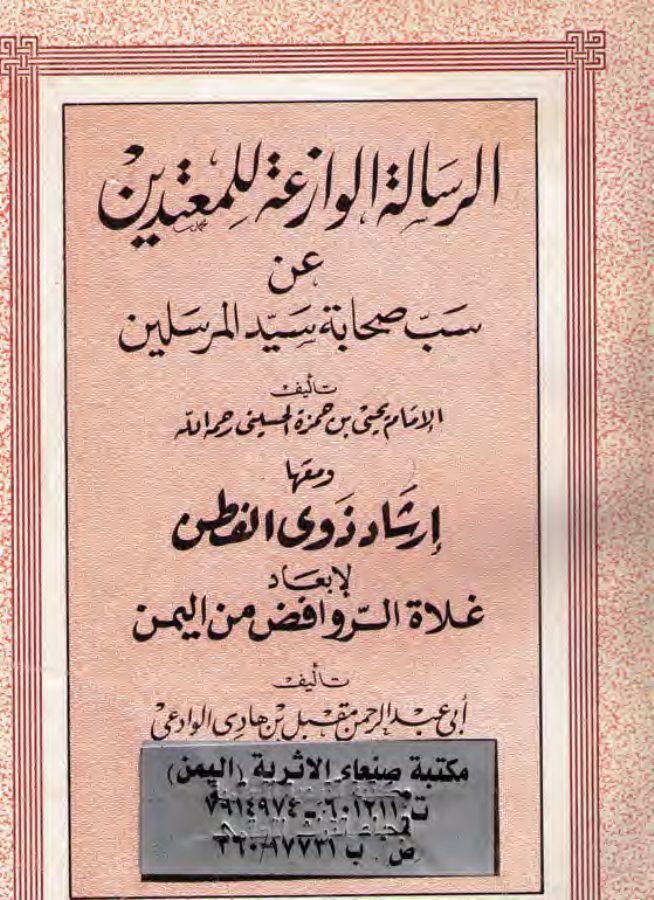 الرسالة الوازعة للمعتدين
عن
سب صحابة سيد المرسلين
تأليف
الإمام يحيى بن حمزة الحسيني رحمه الله
ومعها
إرشاد ذوى الفطن
لإبعاد
غلاة الروافض من اليمن
تأليف
أبى عبد الرحمن مقبل بن هادى الوادعى
مكتبة صنعاء الاثرية (اليمن)
ت
ص ب